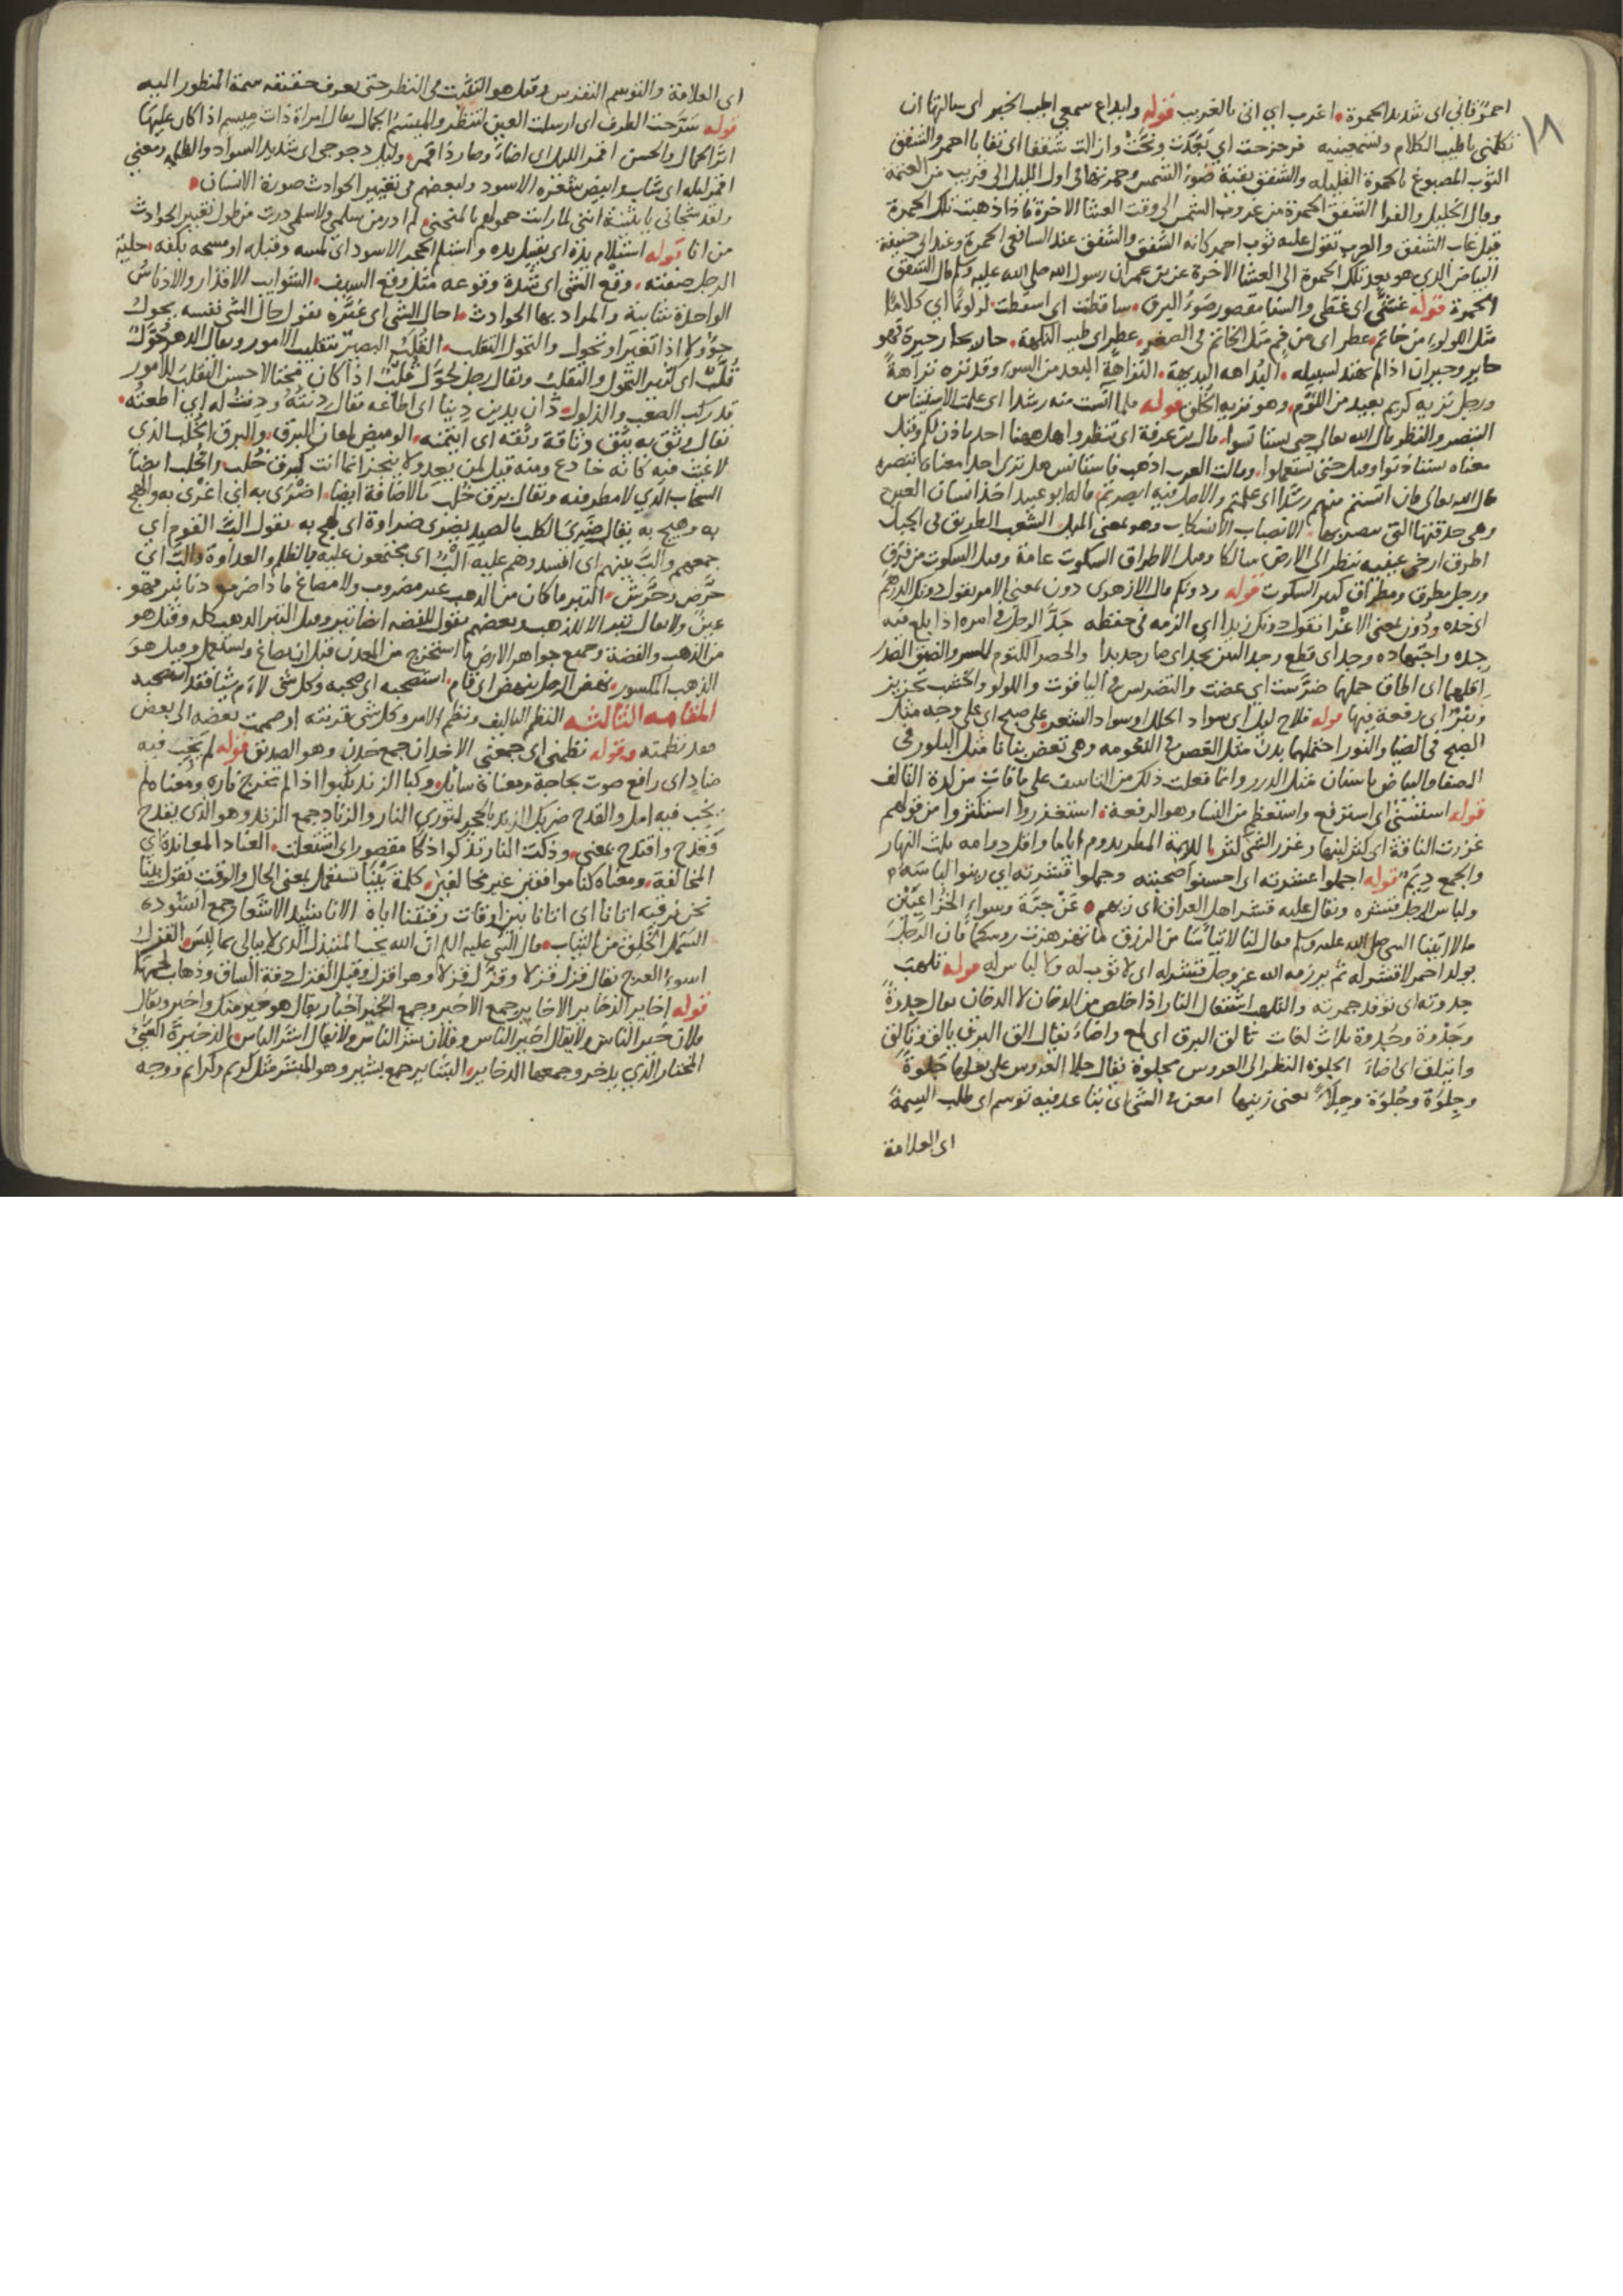 ١٨
احمر قاني اى شديد الحمرة اغرب اي اتى بالغريب قوله وايداع سمعي اطيب الخبر اى سالتها ان
تكلمني باطيب الكلام وتسمعينيه فزحزحت اي بعدت ونحت وازالت شففا اى نقابا احمر والشفق
الثوب المصبوغ بالحمرة القليله والشفق بقية ضوء الشمس وحمرتها في اول الليل الى قريب من العتمة
وقال الخليل والفرا الشفق الحمرة من غروب الشمس الى وقت العشا الاخرة فاذا ذهبت تلك الحمرة
قيل غاب الشفق والعرب تقول عليه ثوب احمر كانه الشفق والشفق عند الشافعي الحمرة وعند ابي حنيفة
البياض الذي هو بعد تلك الحمرة الى العشا الاخرة عن بن عمر ان رسول الله صلي الله عليه وسلم قال الشفق
الحمرة قوله غشّى اى غطى والسنا مقصور ضوء البرق ساقطت اى اسقطت لولوئا اي كلاما
مثل اللولو من خاتم عطر اى من فم مثل الخاتم في الصغر عطر اى طيب النكهة حار يحار حيرة فهو
حاير وحيران اذا لم يهتد لسبيله البداهه البديهة النزاهة البعد من السوء وقد نزه نزاهة
ورجل نزيه كريم بعيد من اللوم وهو نزيه الخلق قوله فلما آنست منه رشدا اى علمت الاستيناس
التبصر والنظر قال الله تعالى حتى تستانسوا قال بن عرفة اى تنظروا هل ههنا احد ياذن لكم وقيل
معناه تستاذنوا وقيل حتى تستعلموا وقالت العرب اذهب فاستانس هل ترى احدا معناه تبصره
قال الله تعالى فان آنستم منهم رشدا اى علمتم والاصل فيه ابصرتم قاله ابو عبيد اخذ انسان العين
وهى حدقتها التي تبصر بها الانصباب الانسكاب وهو بمعنى الميل الشعب الطريق في الجبل
اطرق ارخى عينيه ينظر الى الارض ساكتا وقيل الاطراق السكوت عامة وقيل السكوت من فرق
ورجل مطرق ومطراق كثير السكوت قوله ودونكم قال الازهرى دون بمعنى الامر تقول دونك الدرهم
اى خذه ودون بمعنى الاغرا تقول دونك زيدا اي الزمه في حفظه جدّ الرجل في امره اذا بلغ فيه
جده واجتهاده وجد اى قطع وجد الشى يجد اى صار جديدا والحصر الكتوم للسر والضيق الصدر
اقلها اى اطاق حملها ضرست اي عضت والتضريس في الياقوت واللولو والخشب تحزيز
ونبر اى رفعة فيها قوله فلاح ليل اى سواد الحلل او سواد الشعر على صبح اى على وجه مثل
الصبح في الضيا والنور احتملهما بدن مثل الغصن في النعومه وهى تعض بنانا مثل البلور في
الصفا والبياض باسنان مثل الدرر وانما فعلت ذلك من التاسف على ما فات من لذة التالف
قوله استسنى اى استرفع واستعظم من السنا وهو الرفعة استغزروا استكثروا من قولهم
غزرت الناقة اى كثر لبنها وغزر الشى كثر الديمة المطر يدوم اياما واقل دوامه ثلث النهار
والجمع ديَم قوله اجملوا عشرته اى احسنوا صحبته وجملوا قشرته اى زينوا لباسه
ولباس الرجل قشره ويقال عليه قشر اهل العراق اى زيهم عن حبّة وسواء الخزاعيين
قالا اتينا النبي صلى الله عليه وسلم فقال لنا لا تيأسا من الرزق ما تهزهزت روسكما فان الرجل
يولد احمر لا قشر له ثم يرزقه الله عز وجل قشر له اى لا ثوب له ولا لباس له قوله تلهب
جذوته اى توقد جمرته والتلهب اشتعال النار اذا خلص من الدخان لا الدخان يقال جذوة
وجَذوة وجُذوة ثلاث لغات تالق البرق اى لمع واضاء يقال الق البرق يالق وتالق
وايتلق اى اضاء الجلوة النظر الى العروس مجلوة يقال جلا العروس على بعلها جَلوة
وجِلوة وجُلوة وجلاء يعني زينها امعن في الشى اى تباعد فيه توسم اى طلب السمة
اى العلامة
اى العلامة والتوسم التفرس وقيل هو التثبت في النظر حتى يعرف حقيقة سمة المنظور اليه
قوله سرّحت الطرف اى ارسلت العين لتنظر والميسم الجمال يقال امراة ذات ميسم اذا كان عليها
اثر الجمال والحسن اقمر الليل اى اضاء وصار ذا قمر وليل دجوجى اى شديد السواد والظلمه ومعنى
اقمر ليله اى شاب وابيض شعره الاسود ولبعضهم في تغيير الحوادث صورة الانسان
ولقد شجاني يا بثينة انني لما رات حموله بالمنحنى لم ادر من سلمى ولا سلمى درت من طول تغيير الحوادث
من انا قوله استلام يده اى تقبيل يده واستلم الحجر الاسود اى لمسه وقبله او مسحه بكفه حلية
الرجل صفته وقع الشى اى شدة وقوعه مثل وقع السيف الشوايب الاقذار والادناس
الواحدة شايبة والمراد بها الحوادث احال الشى اى غيّره تقول حال الشى نفسه يحول
حوولا اذا تغير او تحول والتحول التقلب القُلّب البصير بتقليب الامور ويقال الدهر حُوّل
قُلّب اى كثير التحول والتقلب ويقال رجل حُوّل قُلّب اذا كان محتالا حسن التقلب للامور
قد ركب الصعب والذلول دان يدين دِينا اى اطاعه يقال دنته ودنت له اي اطعته
يقال وثق به يثق وثاقة وثقه اى ايتمنه الوميض لمعان البرق والبرق الخُلّب الذي
لا غيث فيه كانه خادع ومنه قيل لمن يعد ولا ينجز انما انت كبرق خُلّب والخُلّب ايضا
السحاب الذي لا مطر فيه ويقال برق خلب بالاضافة ايضا اضرى به اى اغرى به والهج
به وهيج به يقال ضرى الكلب بالصيد يضرى ضراوة اى لهج به يقول البّ القوم اي
جمعهم والّب بينهم اى افسد وهم عليه البٌ اى مجتمعون عليه بالظلم والعداوة والّب اي
حرّض وحرّش التبر ما كان من الذهب غير مضروب ولا مصاغ فاذا ضرب دنانير فهو
عين ولا يقال تبر الا للذهب وبعضهم يقول للفضه ايضا تبر وقيل التبر الذهب كله وقيل هو
من الذهب والفضة وجميع جواهر الارض ما استخرج من المعدن قبل ان يصاغ ويستعمل وقيل هو
الذهب المكسور نهض الرجل ينهض اى قام استصحبه اى صحبه وكل شى لاءم شيا فقد استصحبه
المقامه الثالثه النظم التاليف ونظم الامر وكل شى قرنته او ضممت بعضه الى بعض
فقد نظمته وقوله نظمنى اى جمعنى الاخدان جمع خدن وهو الصديق قوله لم يخب فيه
مناد اى رافع صوت بحاجة ومعناه سائل وكبا الزند يكبوا اذا لم تخرج ناره ومعناه لم
يخب فيه امل والقدح ضربك الزند بالحجر لتوري النار والزناد جمع الزند وهو الذى يقدح
وقدح واقتدح بمعنى وذكت النار تذكوا ذكا مقصور اى اشتعلت العناد المعاندة اي
المخالفة ومعناه كنا موافقين غير مخالفين كلمة بَيْنا تستعمل بمعنى الحال والوقت تقول بينا
نحن نرقبه اتانا اى اتانا بين اوقات رقبتنا اياه الاناشيد الاشعار جمع انشودة
السَمَل الخَلِق من الثياب قال النبي عليه السلم ان الله يحب المتبذل الذى لا يبالى بما لبس القزل
اسوء العرج يقال قزِل قزلا وقزَل قزلا وهو اقزل وقيل القزل دقة الساق وذهاب لحمها
قوله اخاير الذخاير الاخاير جمع الاخير وجمع الخير اخيار يقال هو خير منك واخير ويقال
فلان خير الناس ولا يقال اخير الناس وفلان شر الناس ولا يقال اشر الناس الذخيرة الشى
المختار الذي يدخر وجمعها الذخاير البشاير جمع بشير وهو المبشر مثل كريم وكرايم ووجه